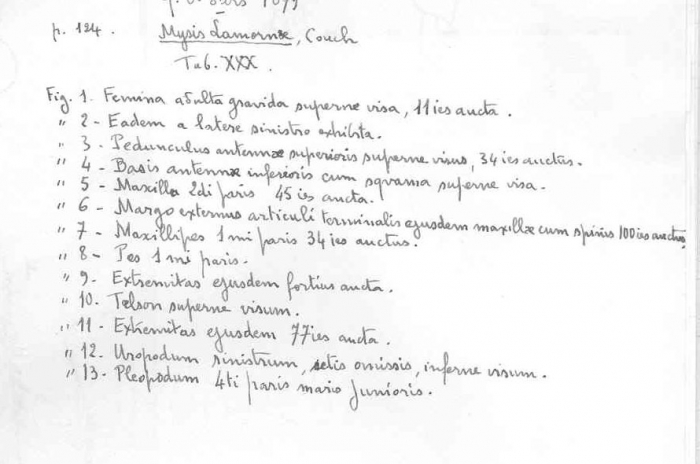 p. 124. Mysis Lamornæ, Couch
Tab. XXX.
Fig. 1. Femina adulta gravida superne visa, 11ies aucta.
" 2 - Eadem a latere sinistro exhibita.
" 3 - Pedunculus antennæ superioris superne visus, 34ies auctus.
" 4 - Basis antennæ inferioris cum squama superne visa.
" 5 - Maxilla 2di paris 45ies aucta.
" 6 - Margo externus articuli terminalis ejusdem maxillæ cum spinis 100ies auctus.
" 7 - Maxillipes 1mi paris 34ies auctus.
" 8 - Pes 1mi paris.
" 9 - Extremitas ejusdem fortius aucta.
" 10. Telson superne visum.
" 11 - Extremitas ejusdem 77ies aucta.
" 12. Uropodum sinistrum, setis omissis, inferne visum.
" 13 - Pleopodum 4ti paris maris junioris.